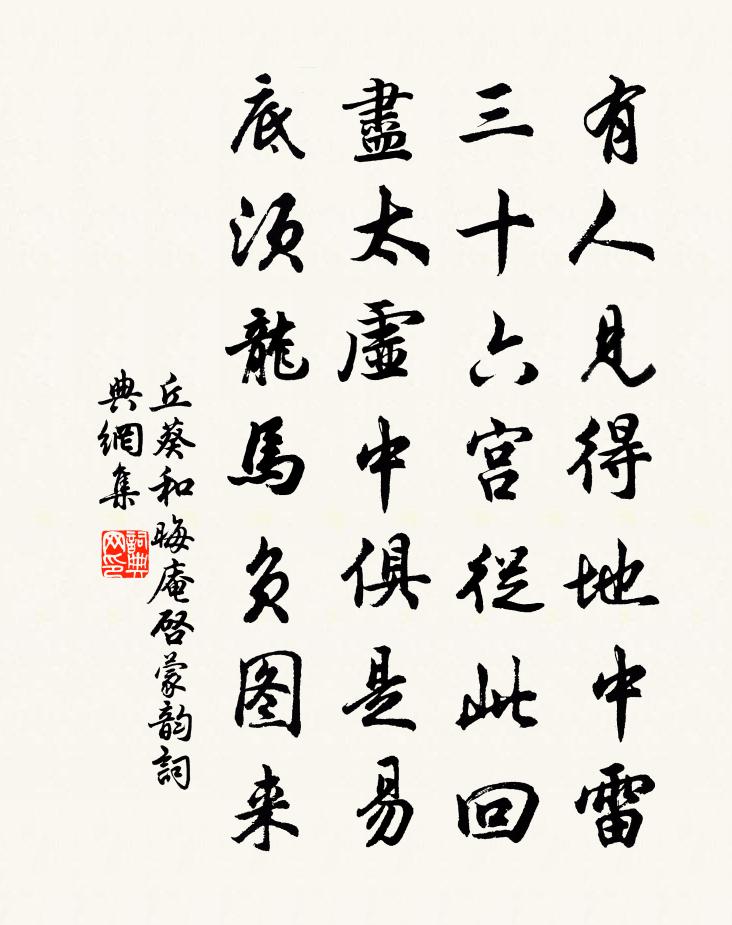 有人見得地中雷
三十六宫從此回
盡太虛中俱是易
底須龍馬负图来
丘葵和晦庵启蒙韵詞
典網集
詞典
网印